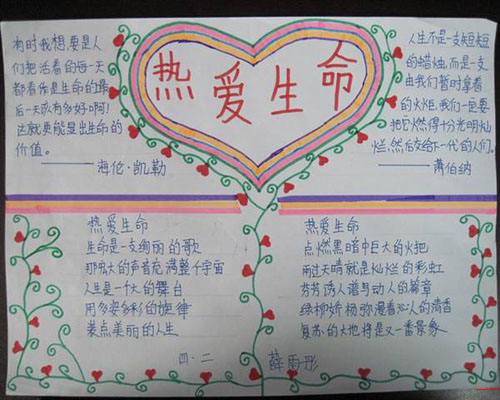 热爱生命
有时我想，要是人
们把活着的每一天
都看作是生命的最
后一天该有多好啊！
这就更能显出生命的
价值。
——海伦·凯勒
人生不是一支短短
的蜡烛，而是一支
由我们暂时拿着
的火炬，我们一定要
把它燃得十分光明灿
烂，然后交给下一代的人们。
——萧伯纳
热爱生命
生命是一支绚丽的歌
那宏大的声音充满整个宇宙
人生是一个大的舞台
用多姿多彩的旋律
装点美丽的人生
热爱生命
点燃黑暗中巨大的火把
雨过天晴就是灿烂的彩虹
芬芳诱人谱写动人的篇章
绿柳娇杨弥漫着沁人的清香
复苏的大地将是又一番景象
四·二
薛雨彤